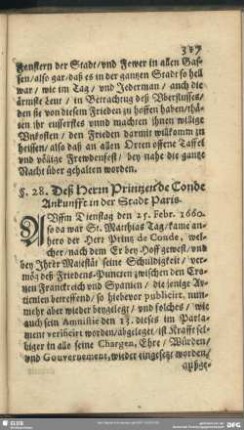 327
Fenstern der Stadt/ vnd Fewer in allen Gas-
sen/ also gar/ daß es in der gantzen Stadt so hell
war/ wie im Tag/ vnd Jederman/ auch die
ärmste Leut/ in Betrachtug deß Vberflusses/
den sie von diesem Frieden zu hoffen haben/ thä-
ten ihr eusserstes vnnd machten ihnen willige
Vnkosten/ den Frieden darmit wilkomm zu
heissen/ also daß an allen Orten offene Taffel
vnd völlige Frewdenfest/ bey nahe die gantze
Nacht über gehalten worden.
§. 28. Deß Herrn Printzen de Conde
Ankunfft in der Stadt Paris.
AVffm Dienstag den 25. Febr. 1660.
so da war St. Matthias Tag/ kame an-
hero der Herr Printz de Conde, wel-
cher/ nach dem Er bey Hoff gewest/ vnd
bey Jhrer Majestät seine Schuldigkeit/ ver-
mög deß Friedens-Puncten zwischen den Cro-
nen Franckreich vnd Spanien/ die jenige Ar-
ticulen betreffend/ so hiebevor publicirt, nun-
mehr aber wieder beygelegt/ vnd solches/ wie
auch sein Amnistie den 13. dieses im Parla-
ment verificirt worden/ abgeleget/ ist Krafft sel-
biger in alle seine Chargen, Ehre/ Würden/
vnd Gouvernement, wieder eingesetzt worden/